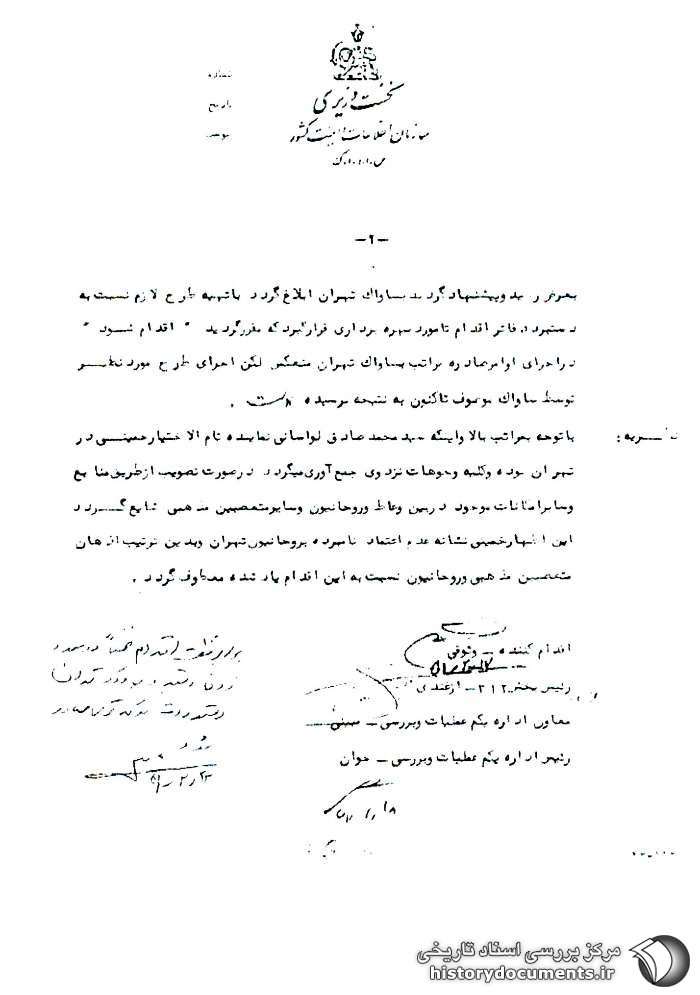 شماره
تاریخ
پیوست
نخست وزیری
سازمان اطلاعات و امنیت کشور
س.ا.و.ا.ک
-۲-
بعرض رسید و پیشنهاد گردید بساواک تهران ابلاغ گردد با تهیه طرح لازم نسبت به
دستبرد دفاتر اقدام تا مورد بهره برداری قرار گیرد که مقرر گردید " اقدام شود "
در اجرای اوامر صادره مراتب بساواک تهران منعکس لکن اجرای طرح مورد نظر
توسط ساواک موصوف تاکنون به نتیجه نرسیده است .
نظریه : با توجه بمراتب بالا و اینکه سید محمد صادق لواسانی نماینده تام الاختیار خمینی در
تهران بوده و کلیه وجوهات نزد وی جمع آوری میگردد در صورت تصویب از طریق منابع
و سایر امکانات موجود در بین وعاظ و روحانیون و سایر متعصبین مذهبی شایع گردد
این اظهار خمینی نشانه عدم اعتماد نامبرده بروحانیون تهران و بدین ترتیب اذهان
متعصبین مذهبی و روحانیون نسبت به این اقدام یاد شده معطوف گردد .
اقدام کننده - وثوقی
رئیس بخش ۳۱۲ - ازغندی
معاون اداره یکم عملیات و بررسی -
رئیس اداره یکم عملیات و بررسی - جوان
مرکز بررسی اسناد تاریخی
historydocuments.ir